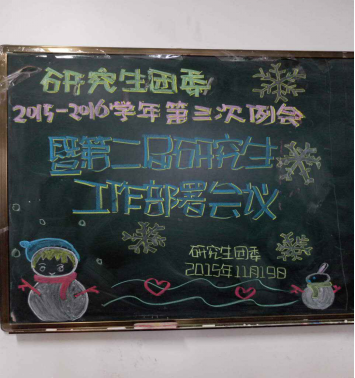 研究生团委
2015-2016学年第三次例会
暨第二届研究生
工作部署会议
研究生团委
2015年11月19日